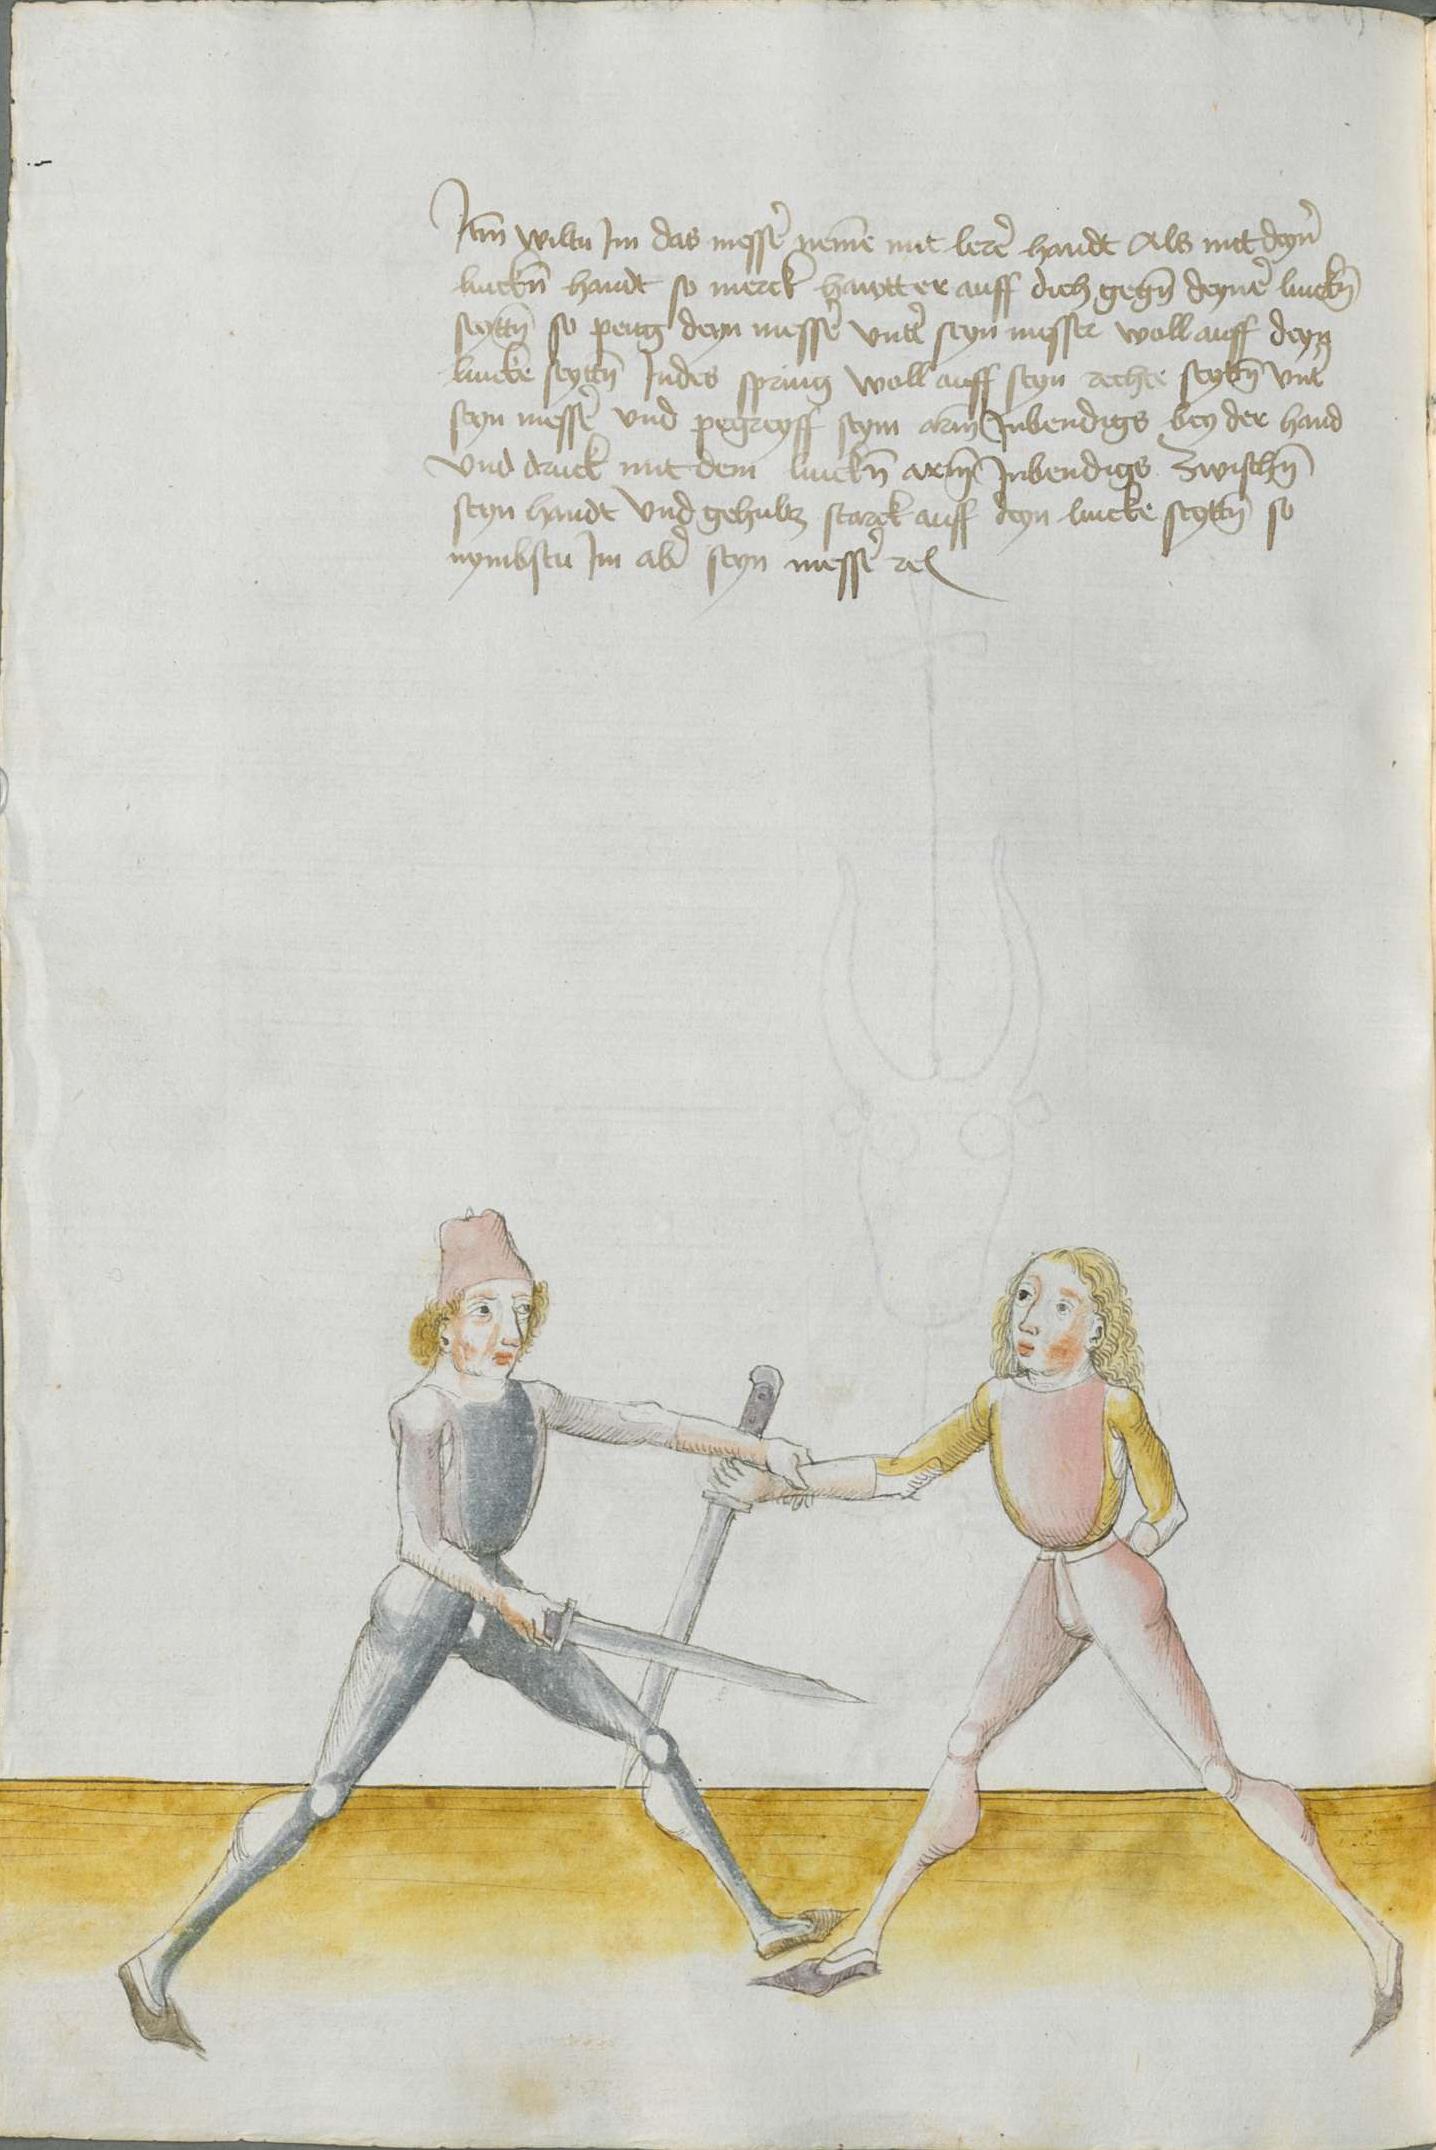 Itm̄ wiltu Im das messer̄ nemē mit lerer̄ handt Als mit deyn̄
linckn̄ handt so merck hawtt er auff dich gegn̄ deyner̄ linckn̄
seyttn̄ so peug deyn messer̄ vnter̄ seyn messer woll auff deyn
lincke seyttn̄ Indes spring woll auff seyn rechte seyttn̄ vnt
seyn messer̄ vnd pegreyff seym arm̄ Inbendigs bey der hand
vnd druck mit dem linckn̄ arm̄ Inbendigs zwischn̄
seyn handt vnd gehultz starck auff deyn lincke seyttn̄ so
nymbstu Im aber̄ seyn messer̄